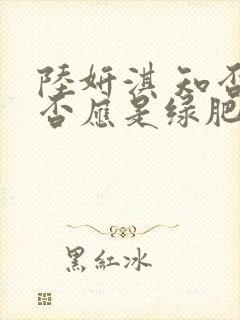 陸妍淇 知否
否應是绿肥
黑紅冰